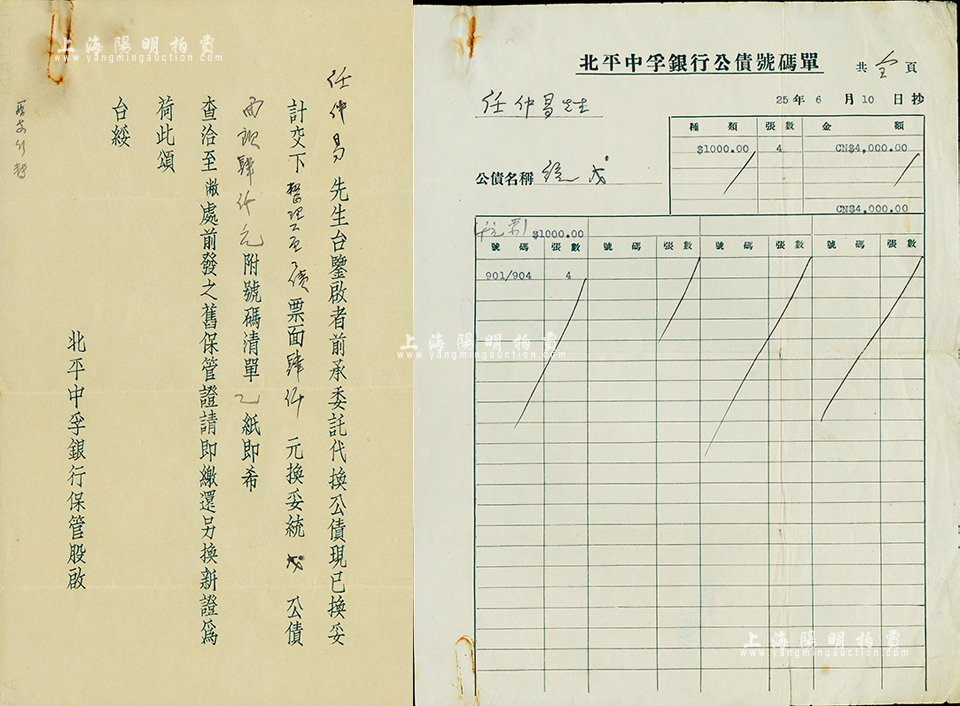 任仲易 先生台鑒啟者前承委託代換公債現已換妥
計交下 整理六厘債票面肆仟 元換妥統 戊 公債
面額肆仟元附號碼清單乙紙即希
查洽至敝處前發之舊保管證請即繳還另換新證為
荷此頌
台綏
北平中孚銀行保管股啟
北平中孚銀行公債號碼單
共 全 頁
25 年 6 月 10 日抄
任仲易先生
種類 張數 金額
$1000.00 4 CN$4,000.00
CN$4,000.00
公債名稱 統戊
$1000.00
號碼 張數 號碼 張數 號碼 張數 號碼 張數
901/904 4
上海陽明拍賣
www.yangmingauction.com
上海陽明拍賣
www.yangmingauction.com
上海陽明拍賣
www.yangmingauction.com